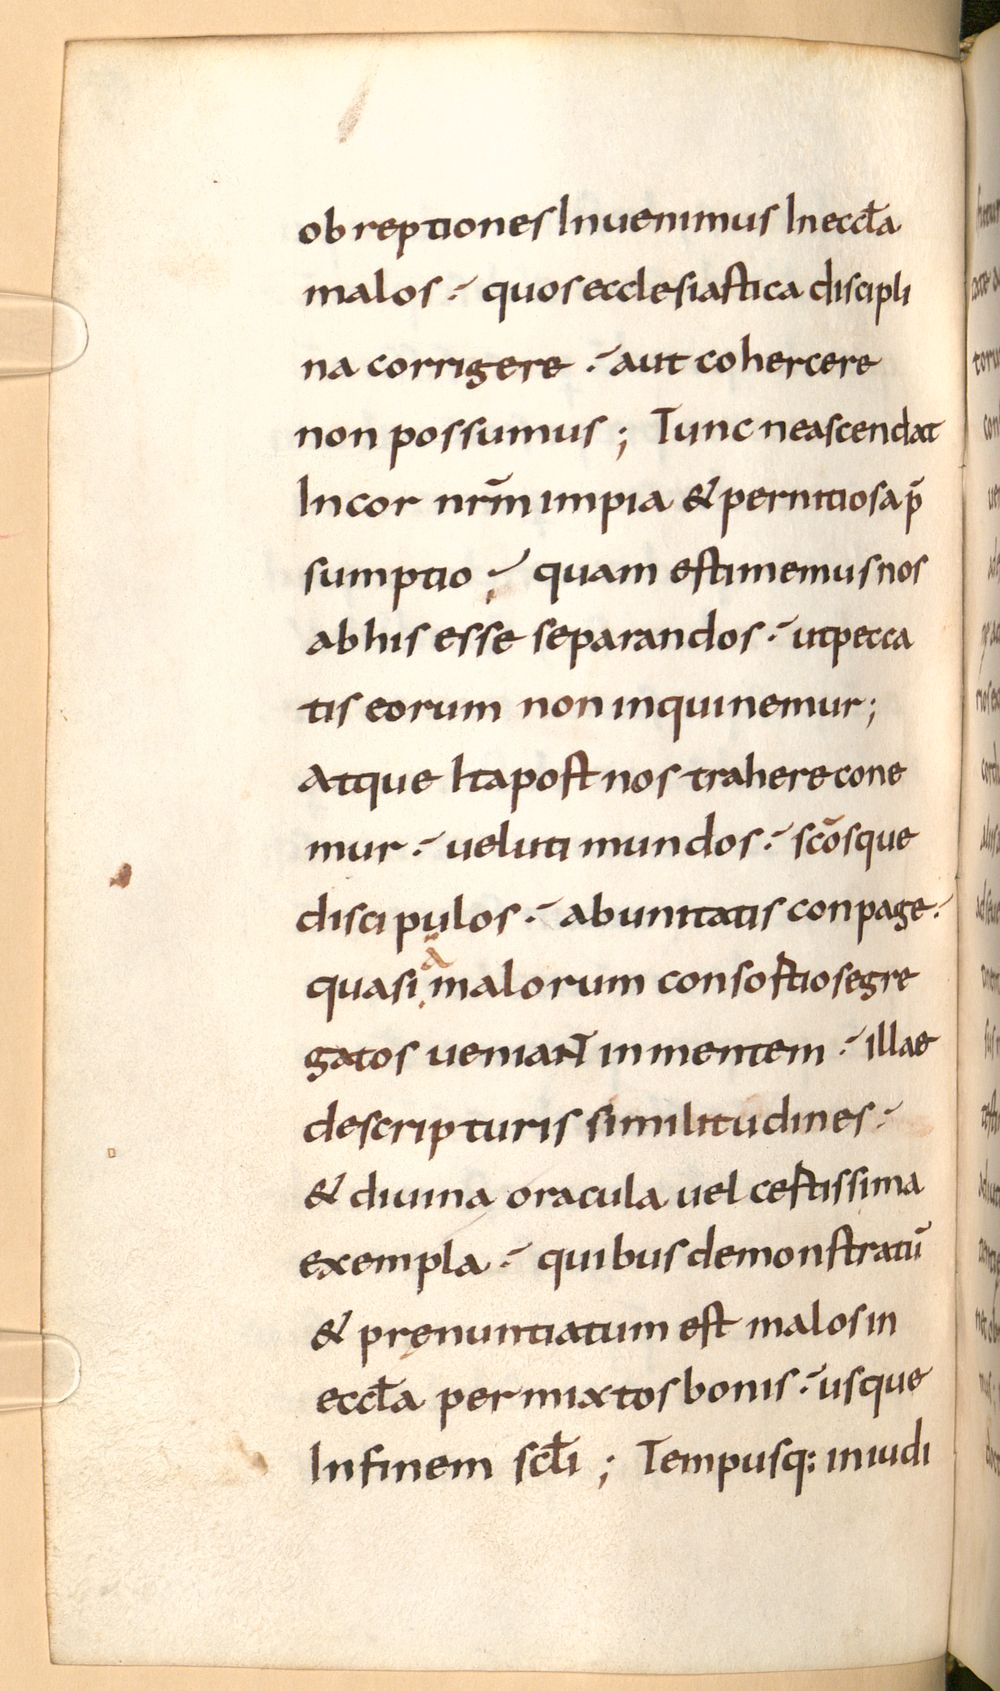 obreptiones Inuenimus In eccła
malos quos ecclesiastica discipli
na corrigere aut cohercere
non possumus ; Tunc ne ascendat
In cor nr̄m impia & pernitiosa p̄
sumptio quam estimemus nos
ab his esse separandos ut pecca
tis eorum non inquinemur ;
Atque Ita post nos trahere cone
mur ueluti mundos sc̄osque
discipulos ab unitatis conpage
quasi a malorum consortio segre
gatos ueniant in mentem illae
de scripturis similitudines
& diuina oracula uel certissima
exempla quibus demonstratū
& pręnuntiatum est malos in
eccła permixtos bonis usque
In finem scłi ; Tempusq: iniudi